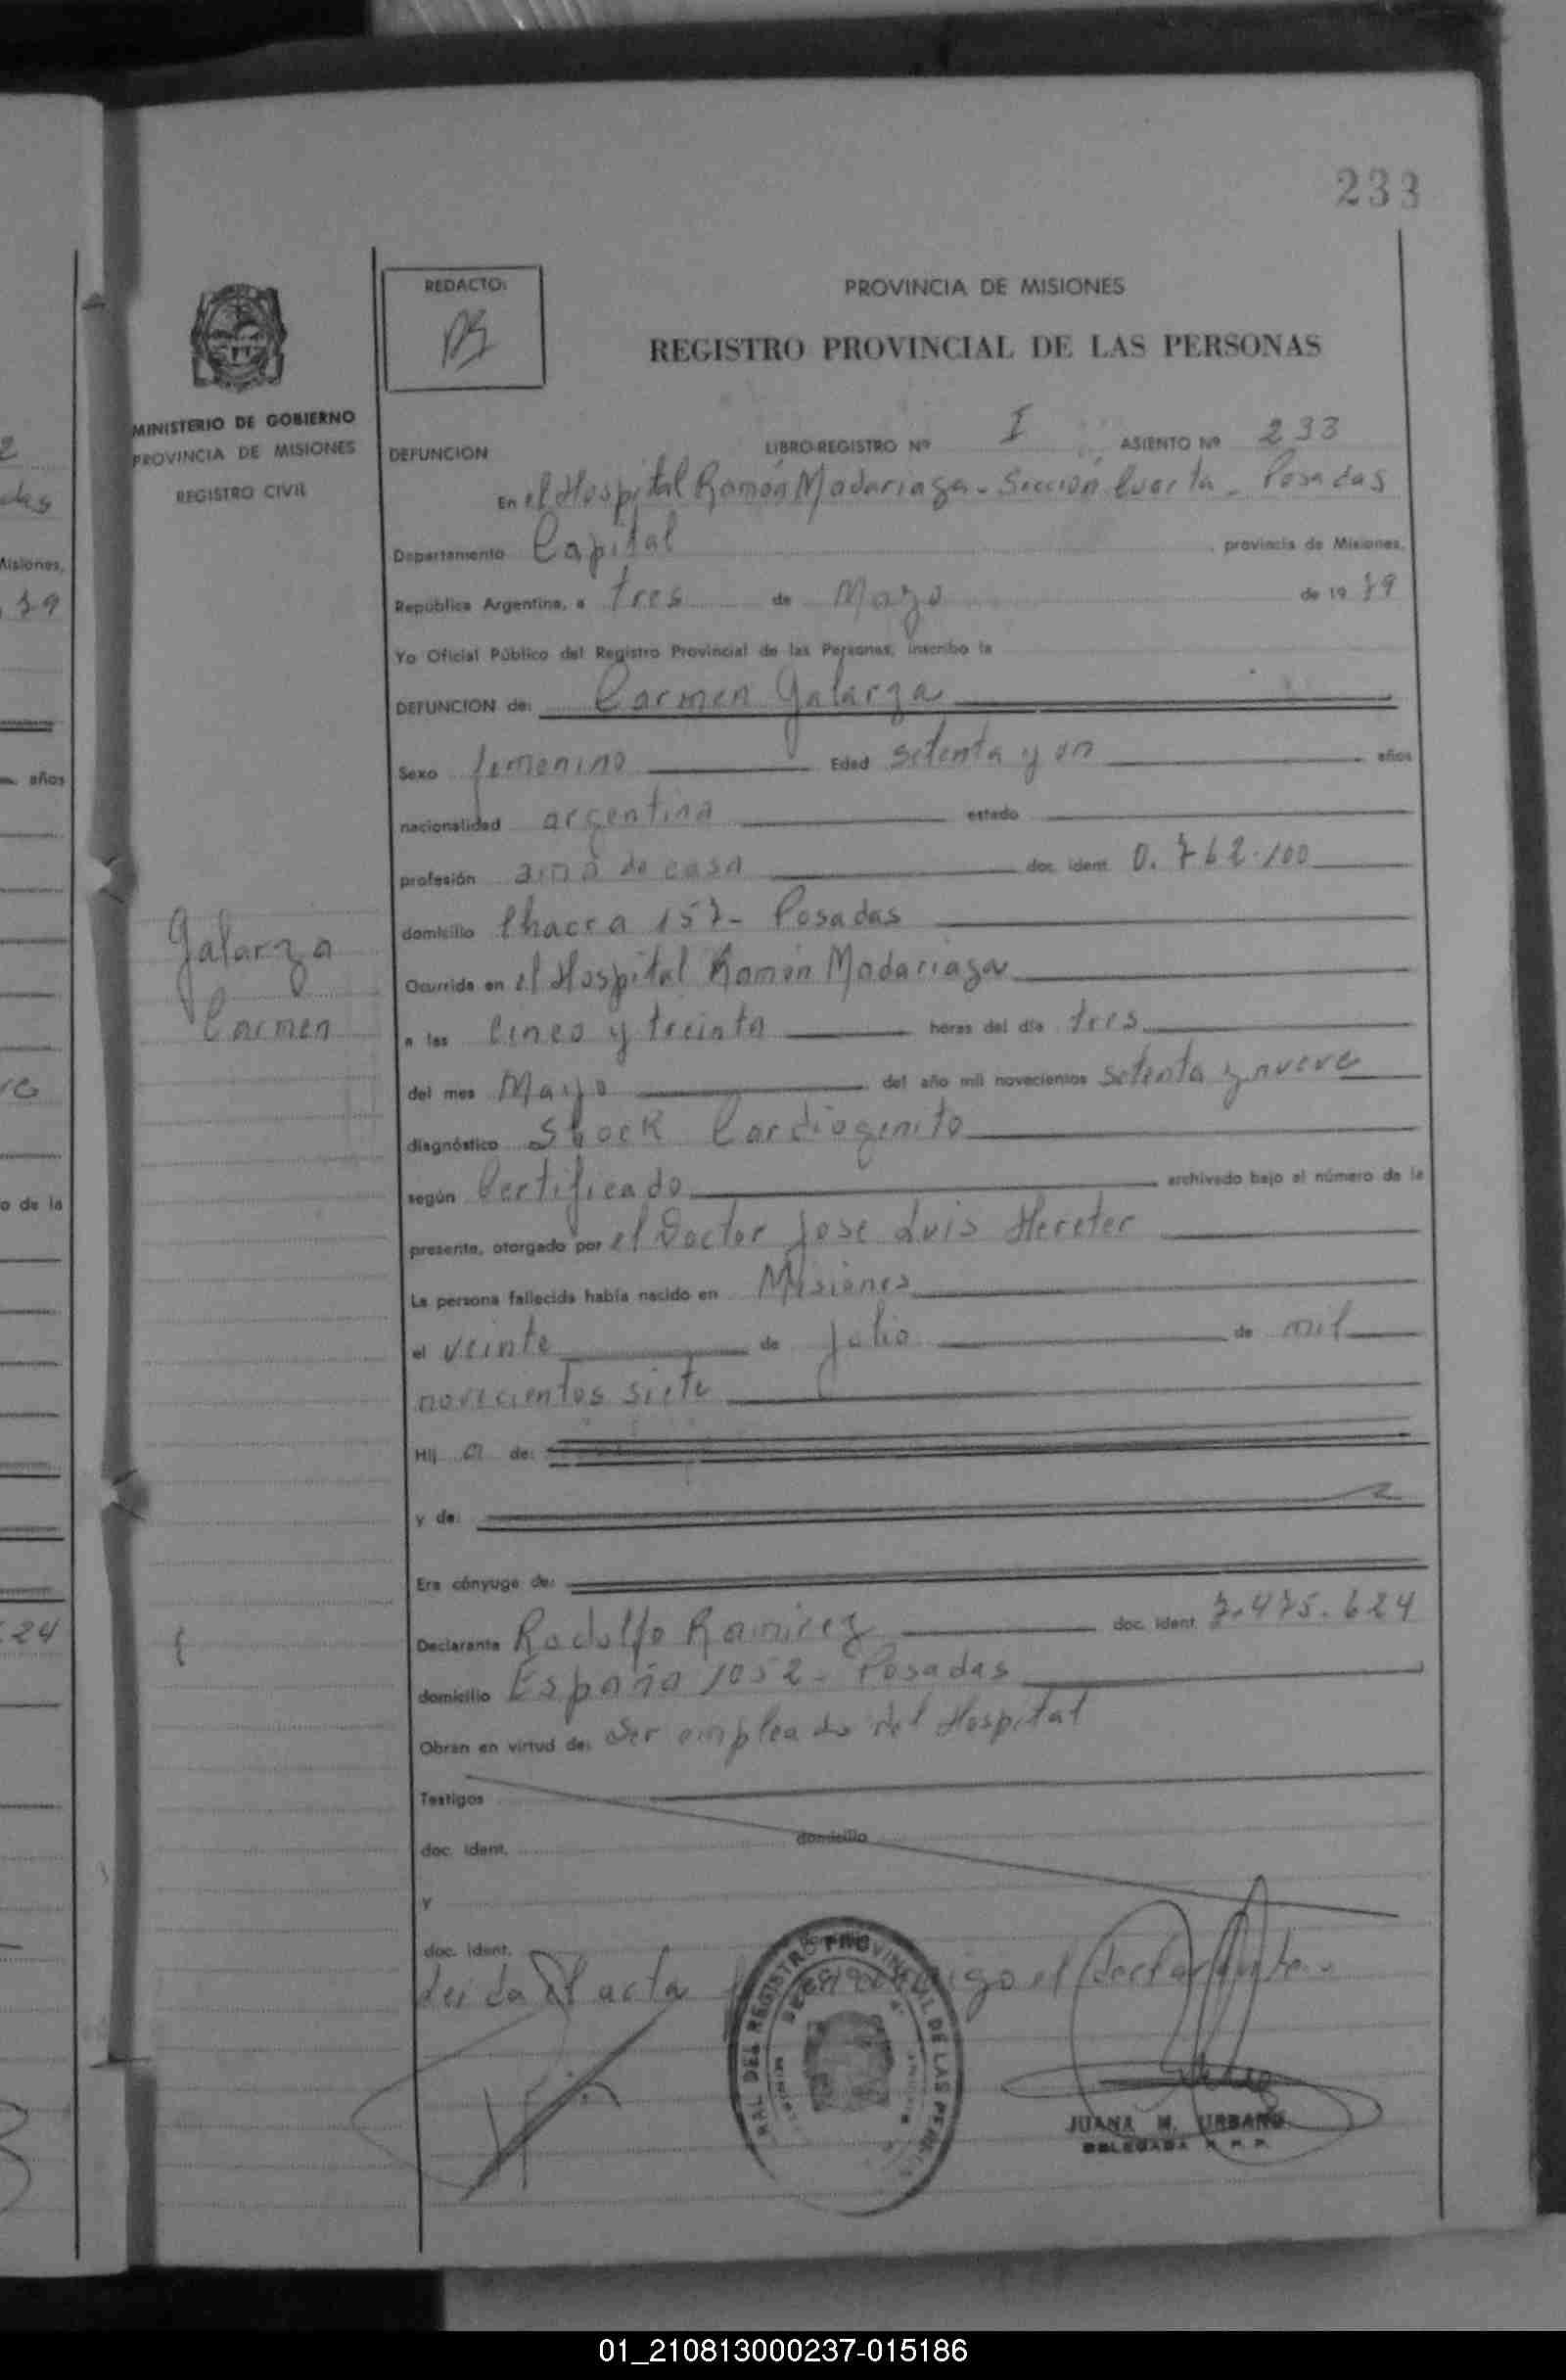 233
REDACTO:
PROVINCIA DE MISIONES
REGISTRO PROVINCIAL DE LAS PERSONAS
MINISTERIO DE GOBIERNO
PROVINCIA DE MISIONES
REGISTRO CIVIL
DEFUNCION LIBRO-REGISTRO Nº I ASIENTO Nº 233
En el Hospital Ramón Madariaga - Sección Cuarta - Posadas
Departamento Capital provincia de Misiones,
República Argentina, a tres de Mayo de 19 79
Yo Oficial Público del Registro Provincial de las Personas, inscribo la
DEFUNCION de: Carmen Galarza
Sexo femenino Edad setenta y un años
nacionalidad argentina estado
profesión ama de casa doc. ident. 0.762.100
domicilio Chacra 157 - Posadas
Galarza
Carmen
Ocurrida en el Hospital Ramón Madariaga
a las Cinco y treinta horas del día tres
del mes Mayo del año mil novecientos setenta y nueve
diagnóstico Shock Cardiogenito
según Certificado archivado bajo el número de la
presente, otorgado por el Doctor Jose Luis Hereter
La persona fallecida había nacido en Misiones
el veinte de julio de mil
novecientos siete
Hij a de:
y de:
Era cónyuge de:
Declarante Rodolfo Ramirez doc. ident. 7.475.624
domicilio España 1052 - Posadas
Obran en virtud de: ser empleado del Hospital
Testigos
doc. ident. domicilio
y
doc. ident.
Leida el acta el declarante.
JUANA M. URBANO
DELEGADA R. P. P.
01_210813000237-015186